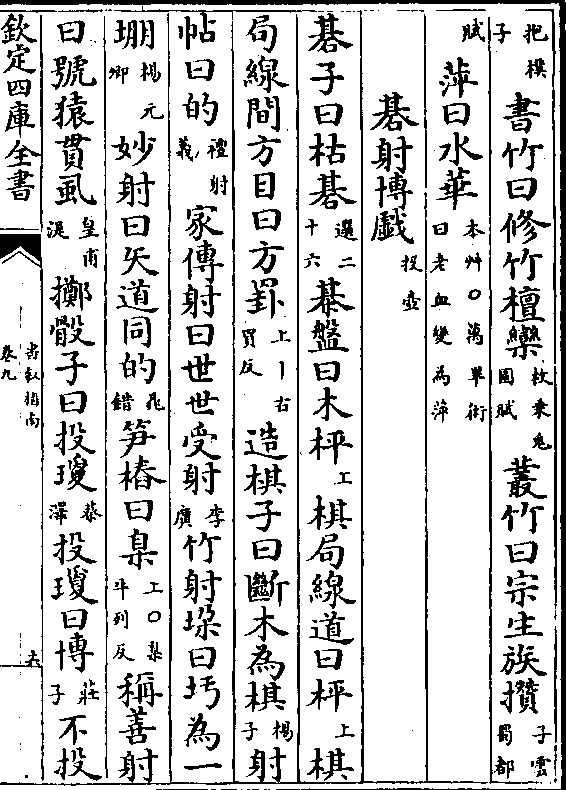 抱樸子書竹曰修竹檀欒枚乘兎園賦叢竹曰宗生族攢子雲蜀都
賦萍曰水華本艸〇萬畢術曰老血變為萍
棊射博戲投壺
棊子曰枯棊選二十六棊盤曰木枰上棋局線道曰枰上棋
局線間方目曰方罫上丨古買反造棋子曰斷木為棋楊子射
帖曰的禮射義家傳射曰世世受射李廣竹射垜曰圬為一
堋楊元卿妙射曰矢道同的晁錯笋樁曰臬上〇梟牛列反稱善射
曰號猿貫虱皇甫湜擲骰子曰投瓊蔡澤投瓊曰博莊子不投
欽定四庫全書
書叙指南
卷九